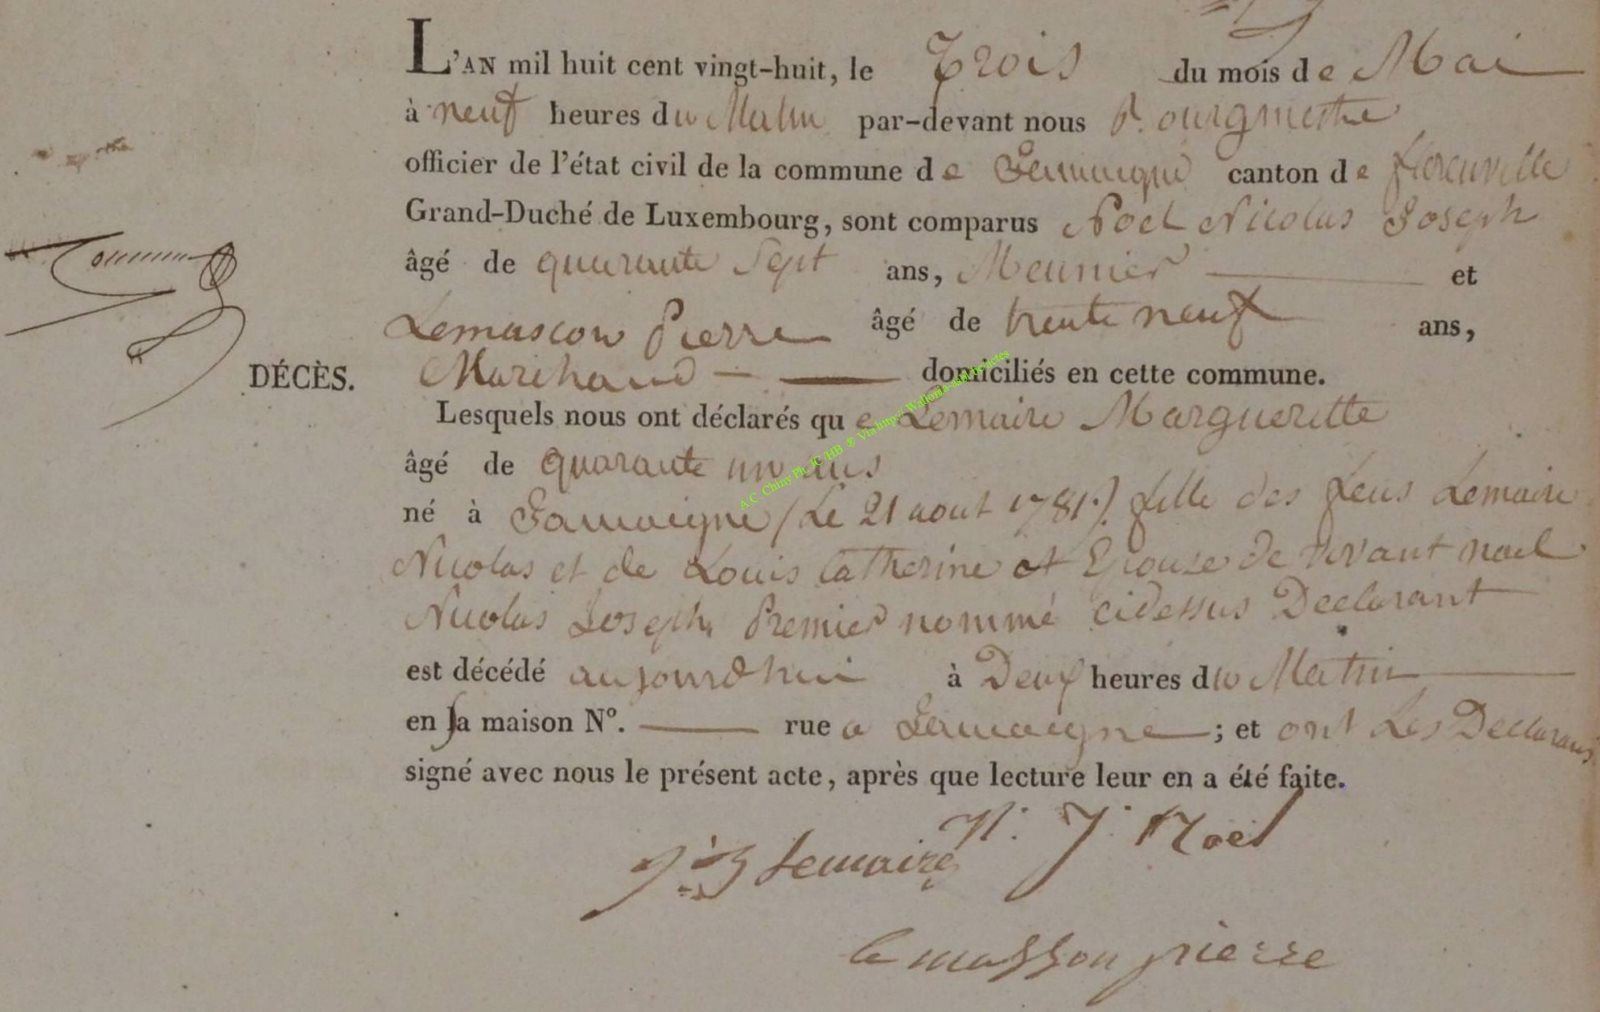 L'AN mil huit cent vingt-huit, le Trois du mois de Mai
à neuf heures du Matin par-devant nous Bourgmestre
officier de l'état civil de la commune de Jamoigne canton de florenville
Grand-Duché de Luxembourg, sont comparus Noël Nicolas Joseph
âgé de quarante Sept ans, Meunier et
Lemascon Pierre âgé de trente neuf ans,
DÉCÈS. Marchand domiciliés en cette commune.
Lesquels nous ont déclarés que Lemaire Margueritte
âgé de quarante un ans
né à Jamoigne (Le 21 aout 1781.) fille des feus Lemaire
Nicolas et de Louis Catherine et Epouse de vivant noel
Nicolas Joseph Premier nommé cidessus Declarant
est décédé aujourdhui à Deux heures du Matin
en sa maison N°. rue a Jamoigne ; et ont Les Declarans
signé avec nous le présent acte, après que lecture leur en a été faite.
N. J. Noel
Lemaire
lemasson pierre